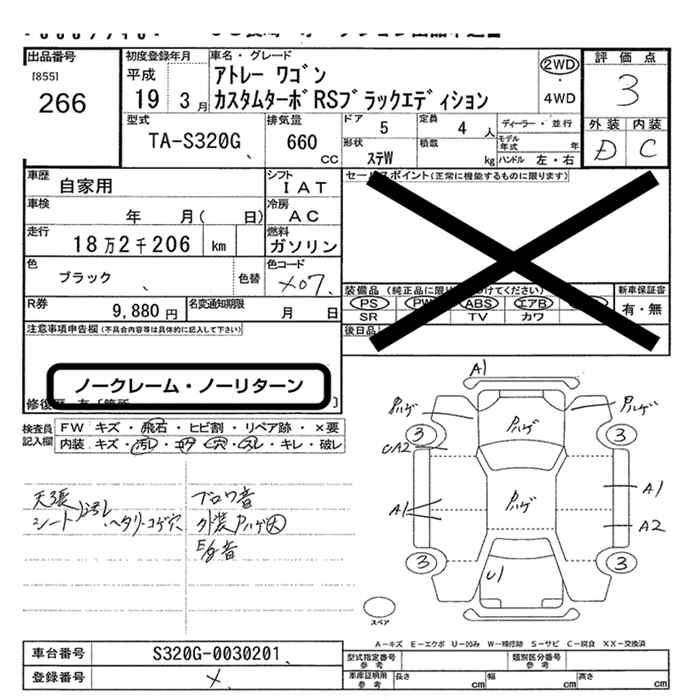 出品番号
[855]
266
初度登録年月
平成
19 3 月
車名・グレード
アトレー ワゴン
カスタムターボRSブラックエディション
2WD
・
4WD
評価点
3
外装 内装
D C
型式
TA-S320G
排気量
660
CC
ドア
5
定員
4 人
ディーラー・並行
形状
ステW
積載
kg
モデル年式 年
ハンドル 左・右
車歴
自家用
シフト
IAT
車検
年 月( 日)
冷房
AC
走行
18万2千206 km
燃料
ガソリン
色
ブラック
色替
色コード
X07
R券
9,880 円
名変通知期限
月 日
セールスポイント(正常に機能するものに限ります)
装備品
PS PW ABS エアB
SR TV カワ
新車保証書
有・無
後日品
注意事項申告欄(不具合内容等は具体的に記入して下さい)
ノークレーム・ノーリターン
検査員
記入欄
FW キズ・飛石・ヒビ割・リペア跡・×要
内装 キズ・汚れ・コゲ・穴・スレ・キレ・破レ
天張
シート 汚れ・ヘタリ・コゲ穴
ブロワ音
外装Pハゲ大
A1
Pハゲ
Pハゲ
Pハゲ
3
3
UA2
Pハゲ
A1
A1
A2
3
3
U1
スペア
A-キズ E-エクボ U-凹み W-補修跡 S-サビ C-腐食 XX-交換済
車台番号
S320G-0030201
登録番号
型式指定番号
参考
類別区分番号
参考
車庫証明用
参考
長さ cm 幅 cm 高さ cm